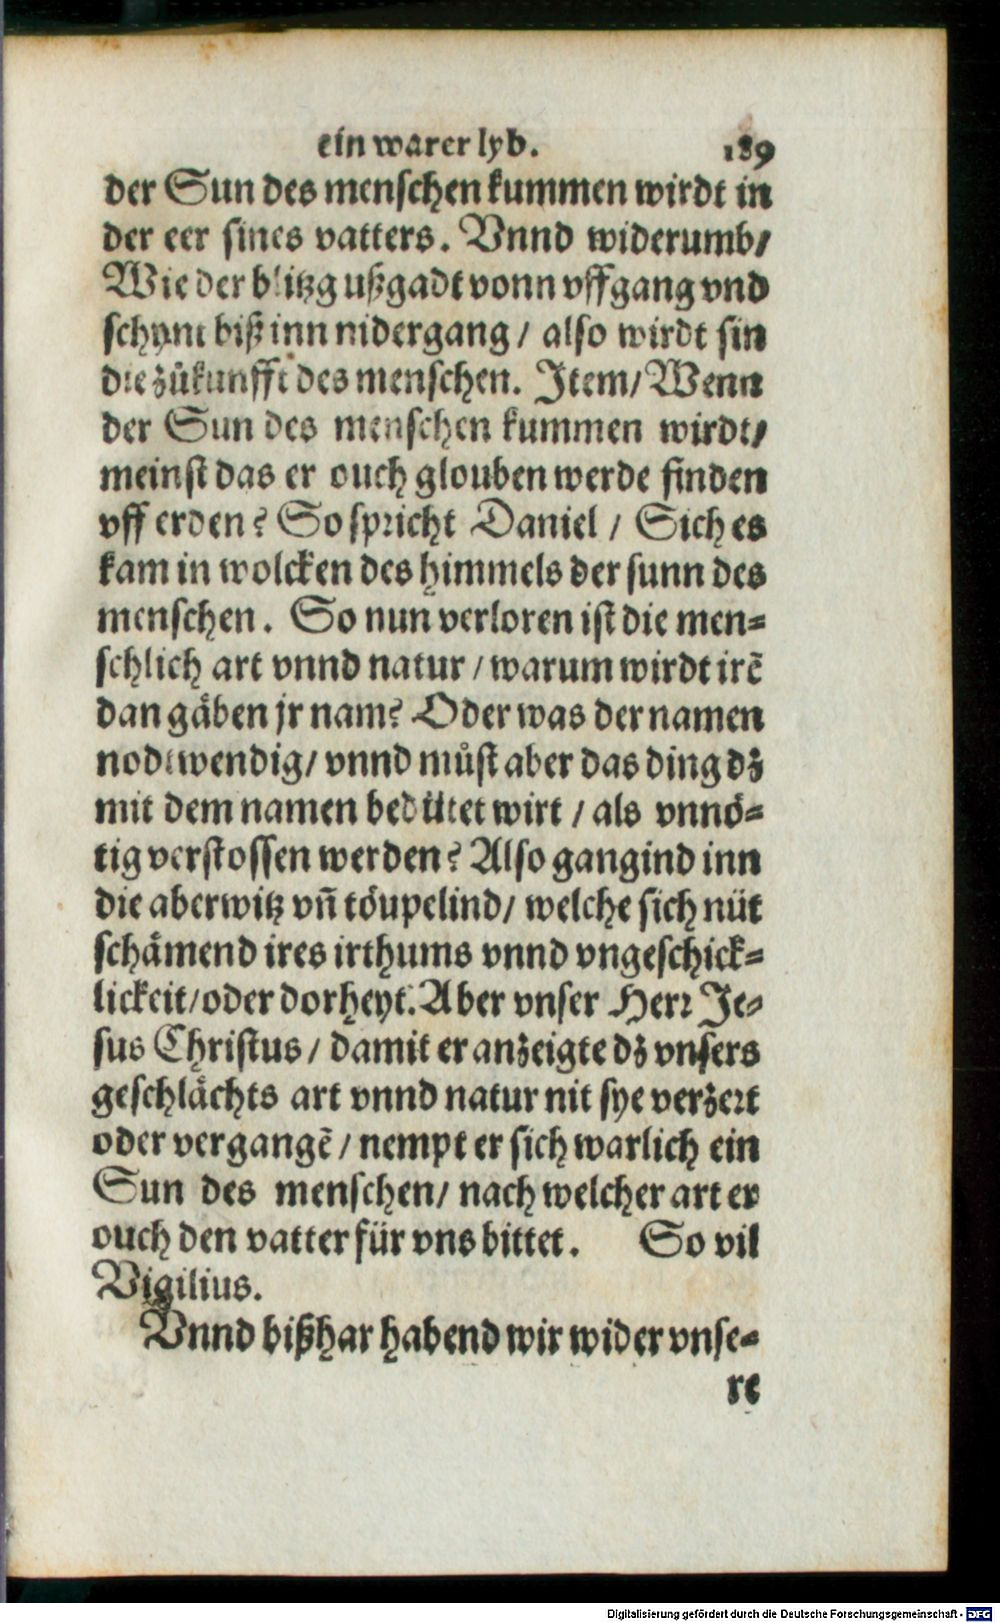 ein warer lyb. 189
der Sun des menschen kummen wirdt in
der eer sines vatters. Vnnd widerumb/
Wie der blitzg ußgadt vonn vffgang vnd
schynt biß inn nidergang / also wirdt sin
die zůkunfft des menschen. Item/ Wenn
der Sun des menschen kummen wirdt/
meinst das er ouch glouben werde finden
vff erden? So spricht Daniel / Sich es
kam in wolcken des himmels der sunn des
menschen. So nun verloren ist die men⸗
schlich art vnnd natur / warum wirdt irē
dan gäben jr nam? Oder was der namen
nodtwendig/ vnnd můst aber das ding dz
mit dem namen bedütet wirt / als vnnö⸗
tig verstossen werden? Also gangind inn
die aberwitz vn̄ töupelind/ welche sich nüt
schämend ires irthums vnnd vngeschick⸗
lickeit/ oder dorheyt. Aber vnser Herr Je⸗
sus Christus / damit er anzeigte dz vnsers
geschlächts art vnnd natur nit sye verzert
oder vergangē / nempt er sich warlich ein
Sun des menschen/ nach welcher art er
ouch den vatter für vns bittet. So vil
Vigilius.
Vnnd bißhar habend wir wider vnse⸗
re
Digitalisierung gefördert durch die Deutsche Forschungsgemeinschaft - DFG